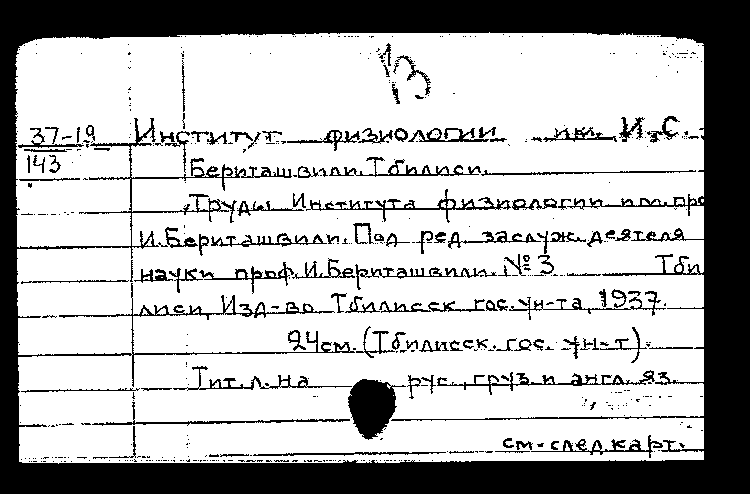 13
37-19 Институт физиологии им. И.С.
143 Бериташвили. Тбилиси.
Труды Института физиологии им. про
И. Бериташвили. Под ред. заслуж. деятеля
науки проф. И. Бериташвили. № 3 Тби
лиси, Изд-во Тбилисск. гос. ун-та, 1937.
24 см. (Тбилисск. гос. ун-т).
Тит. л. на рус., груз. и англ. яз.
см. след. карт.